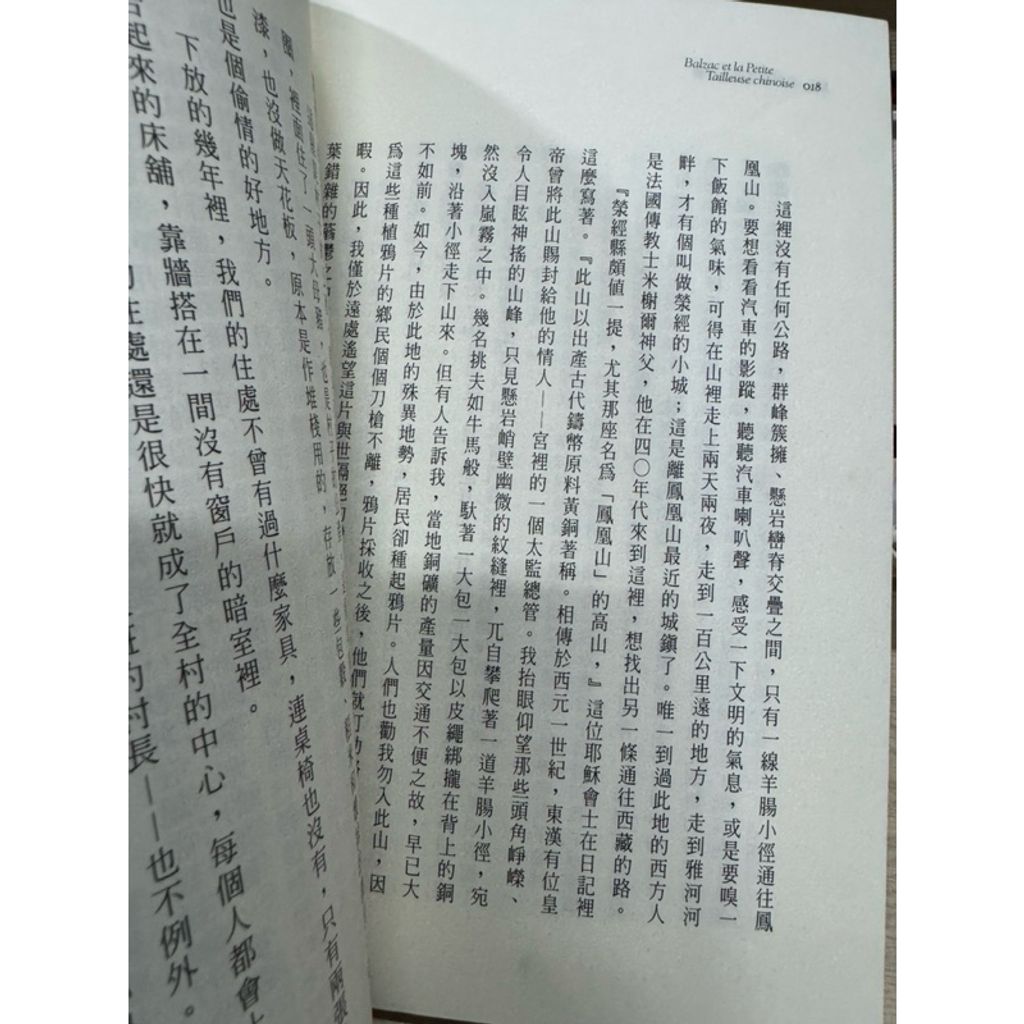 Balzac et la Petite
Tailleuse chinoise 018
這裡沒有任何公路，群峰簇擁、懸岩巒脊交疊之間，只有一線羊腸小徑通往鳳
凰山。要想看看汽車的影蹤，聽聽汽車喇叭聲，感受一下文明的氣息，或是要嗅一
下飯館的氣味，可得在山裡走上兩天兩夜，走到一百公里遠的地方，走到雅河河
畔，才有個叫做滎經的小城；這是離鳳凰山最近的城鎮了。唯一到過此地的西方人
是法國傳教士米榭爾神父，他在四〇年代來到這裡，想找出另一條通往西藏的路。
『滎經縣頗值一提，尤其那座名為「鳳凰山」的高山，』這位耶穌會士在日記裡
這麼寫著。『此山以出產古代鑄幣原料黃銅著稱。相傳於西元一世紀，東漢有位皇
帝曾將此山賜封給他的情人——宮裡的一個太監總管。我抬眼仰望那些頭角崢嶸、
令人目眩神搖的山峰，只見懸岩峭壁幽微的紋縫裡，兀自攀爬著一道羊腸小徑，宛
然沒入嵐霧之中。幾名挑夫如牛馬般，馱著一大包一大包以皮繩綁攏在背上的銅
塊，沿著小徑走下山來。但有人告訴我，當地銅礦的產量因交通不便之故，早已大
不如前。如今，由於此地的殊異地勢，居民卻種起鴉片。人們也勸我勿入此山，因
為這些種植鴉片的鄉民個個刀槍不離，鴉片採收之後，他們就
暇。因此，我僅於遠處遙望這片與世隔絕
葉錯雜的
裡面住了一頭大母豬，
漆，也沒做天花板，原本是作堆棧用的，存放一
也是個偷情的好地方。
下放的幾年裡，我們的住處不曾有過什麼家具，連桌椅也沒有，只有兩張
起來的床舖，靠牆搭在一間沒有窗戶的暗室裡。
住處還是很快就成了全村的中心，每個人都會
的村長——也不例外。